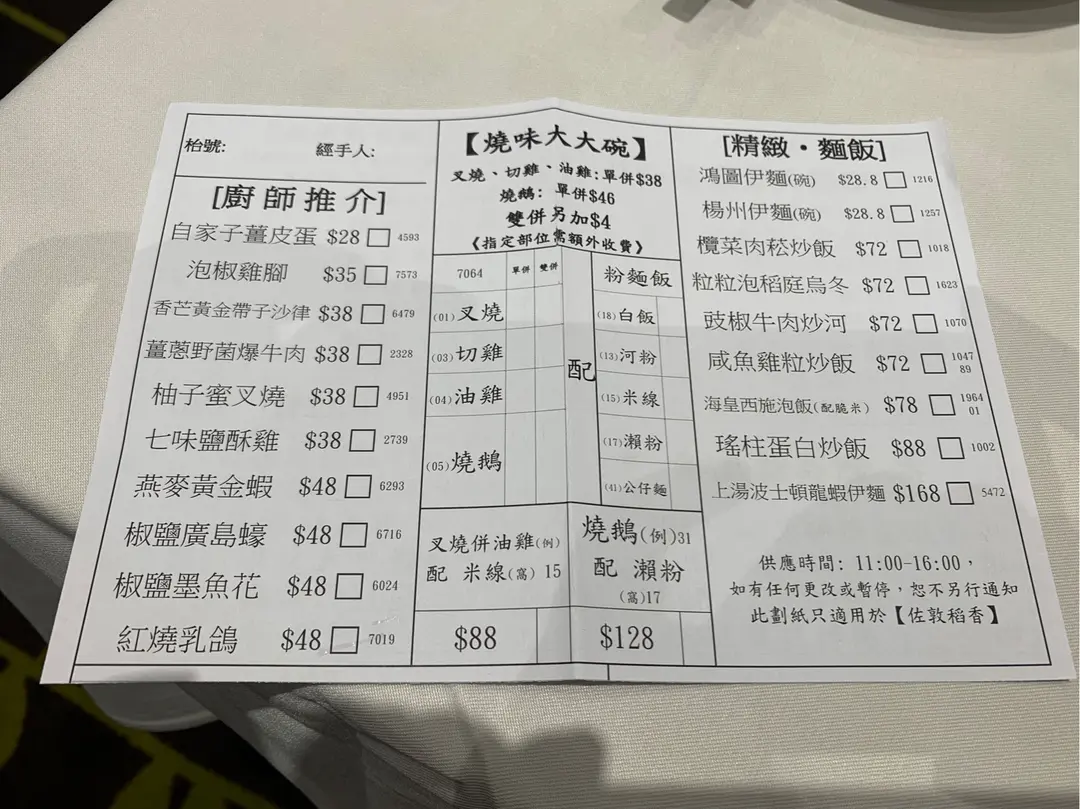 枱號: 經手人:
[廚師推介]
自家子薑皮蛋 $28 4593
泡椒雞腳 $35 7573
香芒黃金帶子沙律 $38 6479
薑蔥野菌爆牛肉 $38 2328
柚子蜜叉燒 $38 4951
七味鹽酥雞 $38 2739
燕麥黃金蝦 $48 6293
椒鹽廣島蠔 $48 6716
椒鹽墨魚花 $48 6024
紅燒乳鴿 $48 7019
【燒味大大碗】
叉燒、切雞、油雞:單併$38
燒鵝: 單併$46
雙併另加$4
《指定部位需額外收費》
7064 單併 雙併
(01)叉燒
(03)切雞
(04)油雞
(05)燒鵝
配
粉麵飯
(18)白飯
(13)河粉
(15)米線
(17)瀨粉
(41)公仔麵
叉燒併油雞(例)
配 米線(窩) 15
$88
燒鵝(例)31
配 瀨粉
(窩)17
$128
[精緻·麵飯]
鴻圖伊麵(碗) $28.8 1216
楊州伊麵(碗) $28.8 1257
欖菜肉菘炒飯 $72 1018
粒粒泡稻庭烏冬 $72 1623
豉椒牛肉炒河 $72 1070
咸魚雞粒炒飯 $72 1047
89
海皇西施泡飯(配脆米) $78 1964
01
瑤柱蛋白炒飯 $88 1002
上湯波士頓龍蝦伊麵 $168 5472
供應時間: 11:00-16:00,
如有任何更改或暫停,恕不另行通知
此劃紙只適用於【佐敦稻香】